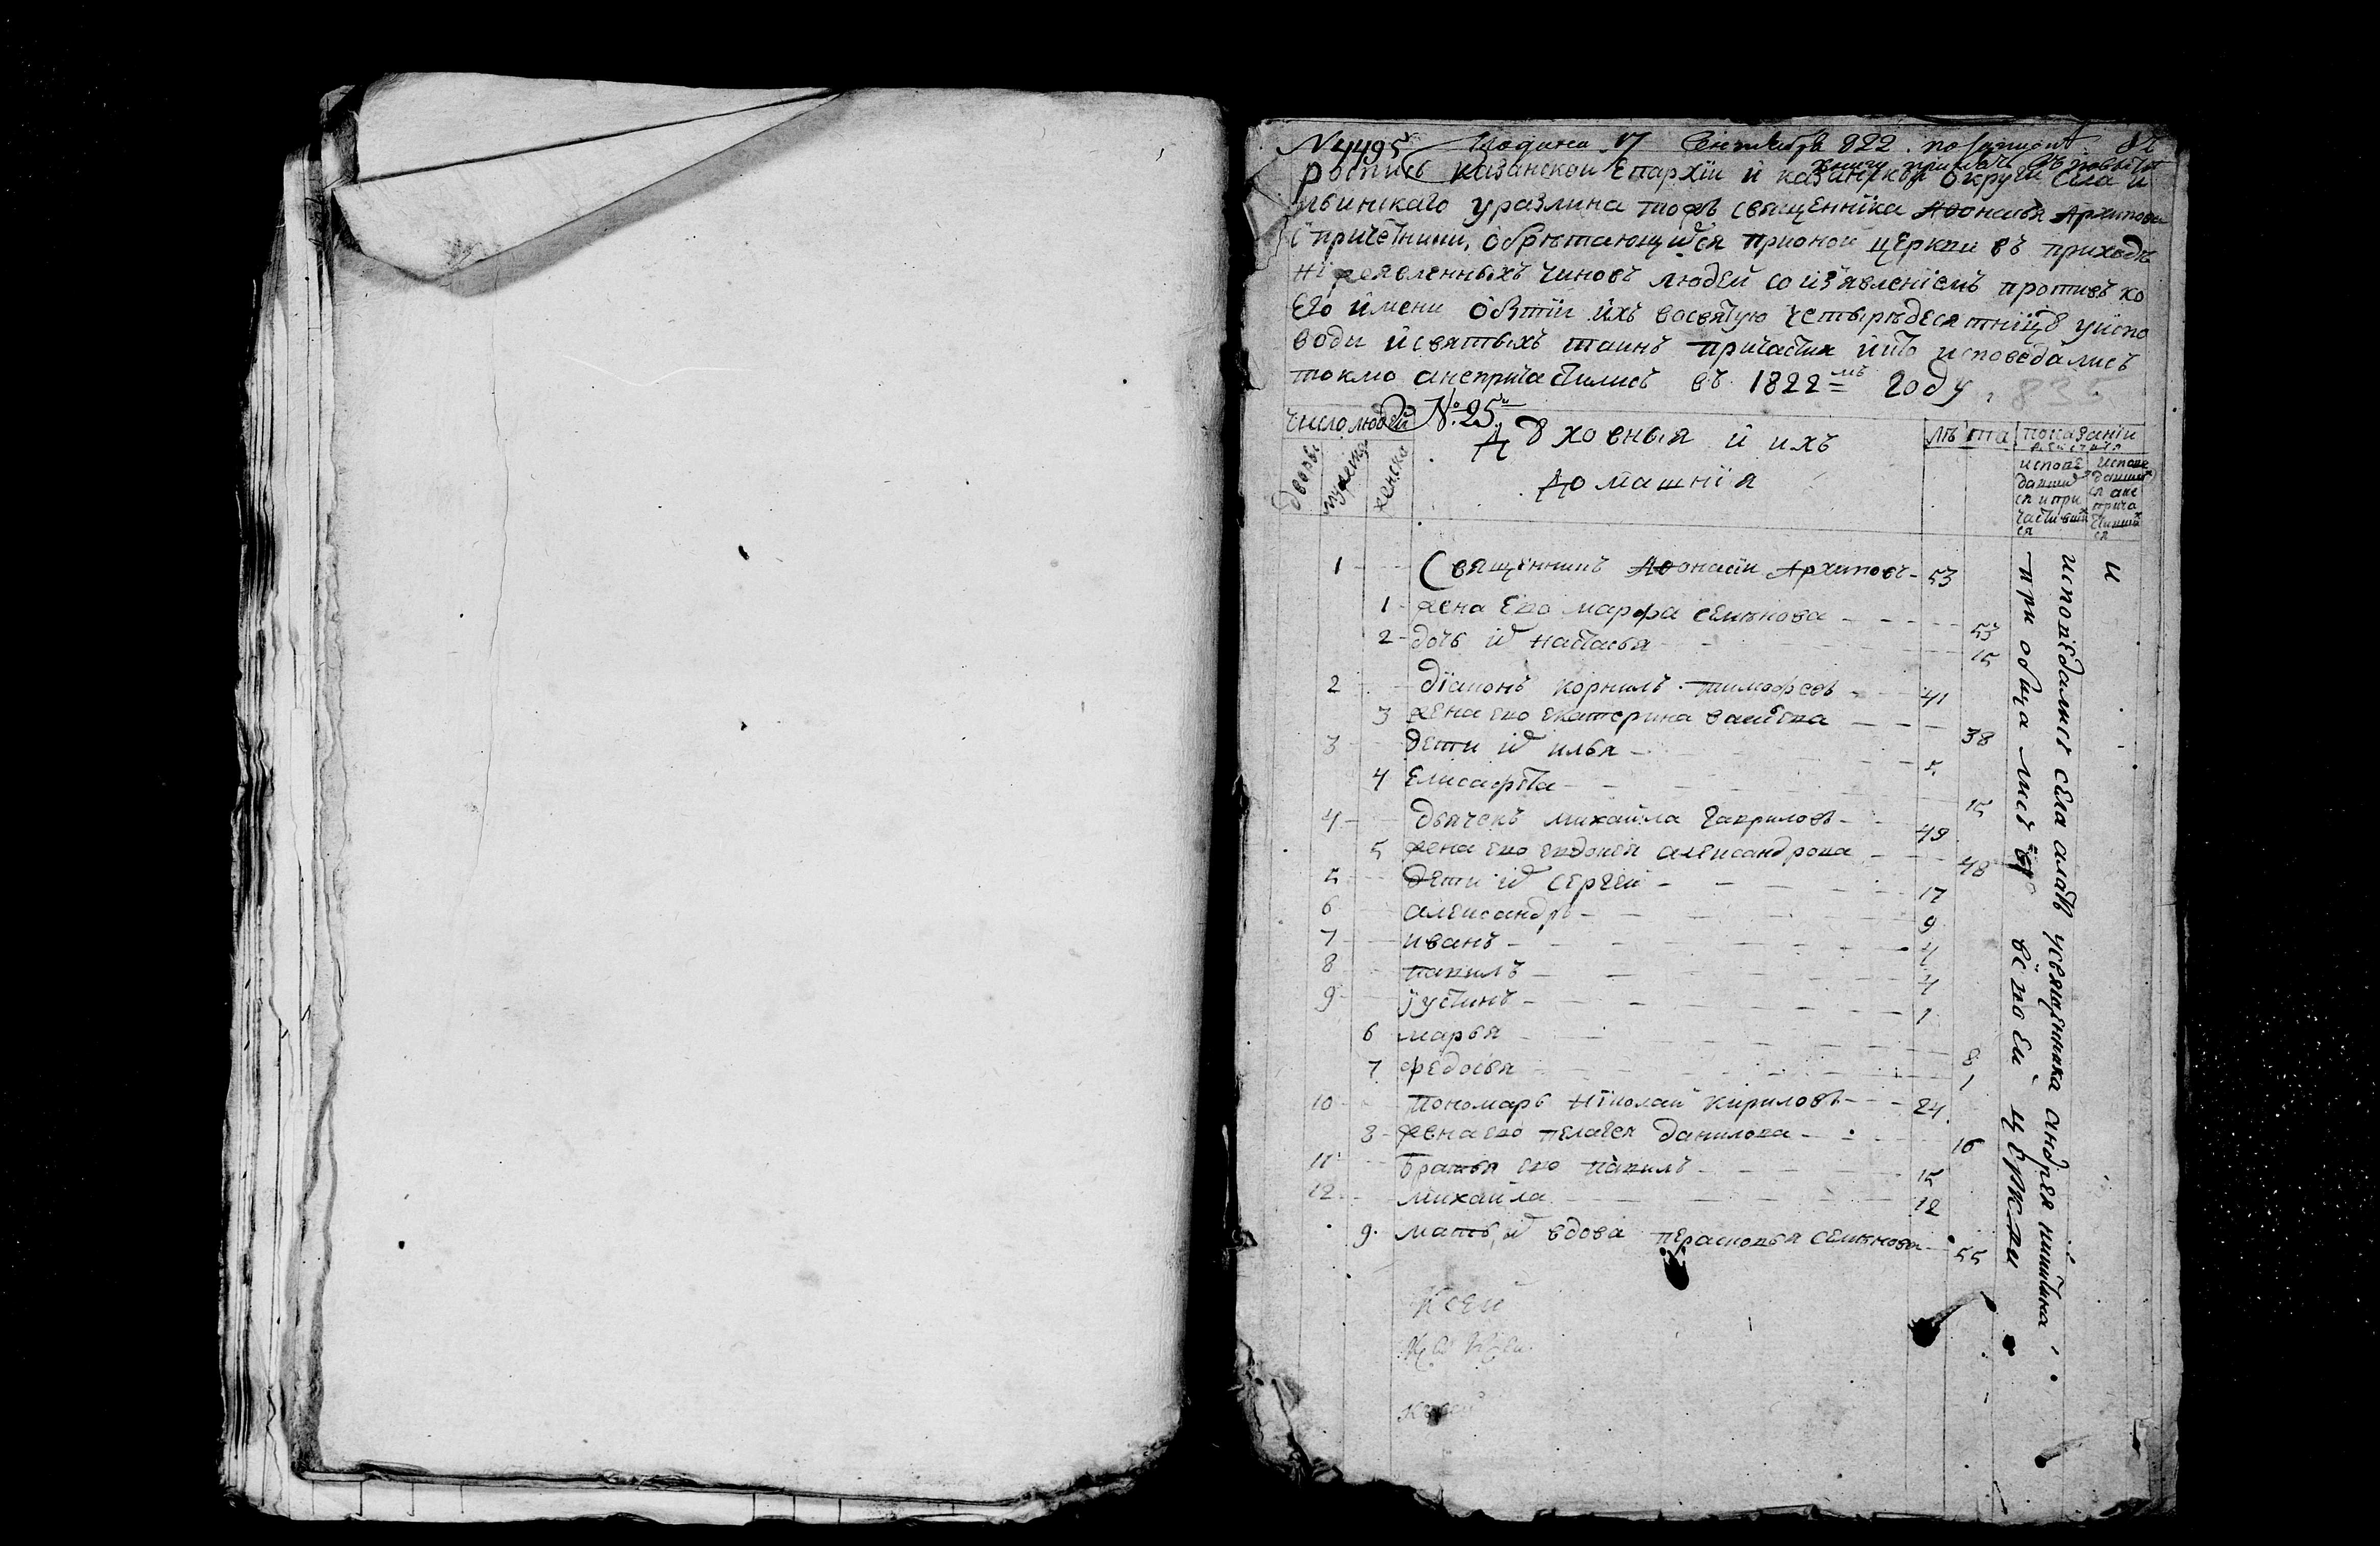 N 4495 Подана 17 Сентября 822. по запискѣ въ
книгу принять въ повытье
Роспись казанской Епархїи й казанской округи Села и
льинскаго уразлина тожъ священнїка Афонасья Архипова
С причетники, Обрѣтающихся прионой церкви въ приходѣ
нїжеявленныхъ чиновъ людей со изъявленїемъ противъ ко
Его ймени Обытїи ихъ восвятую четыредесятнїцѣ уиспо
веди йсвятыхъ таинъ причастия йкто исповедались
токмо анепричастились въ 1822=мъ году. 835
число людей № 25
дворы
мужеска
женска
Дѣховныя й ихъ
Домашнїя
лѣта
показанїи
дѣйства
исповедавшихся и причастившихся
исповедавшихся ане причастившихся
1 Священникъ Афонасїи Архиповъ 53
1 жена Ево марфа семѣнова 53
2 дочь их настасья 15
2 дїаконъ корнилъ тимофеевъ 41
3 жена ево екатерина васильева 38
3 дети их илья 5
4 Елисафета 15
4 дьячекъ михайла гавриловъ 49
5 жена ево евдокея александрова 48
5 дети их сергеи 17
6 александръ 9
7 иванъ 4
8 павилъ 4
9 їустинъ 1
6 марья 8
7 федосья 1
10 пономарь нїколаи кириловъ 24
8 жена ево пелагея данилова 16
11 братья ево павилъ 15
12 михайла 12
9 мать их вдова перасковья семѣнова 55
и
исповедались села алатъ усвященника андрея никитина
приобщались въ своей церкви